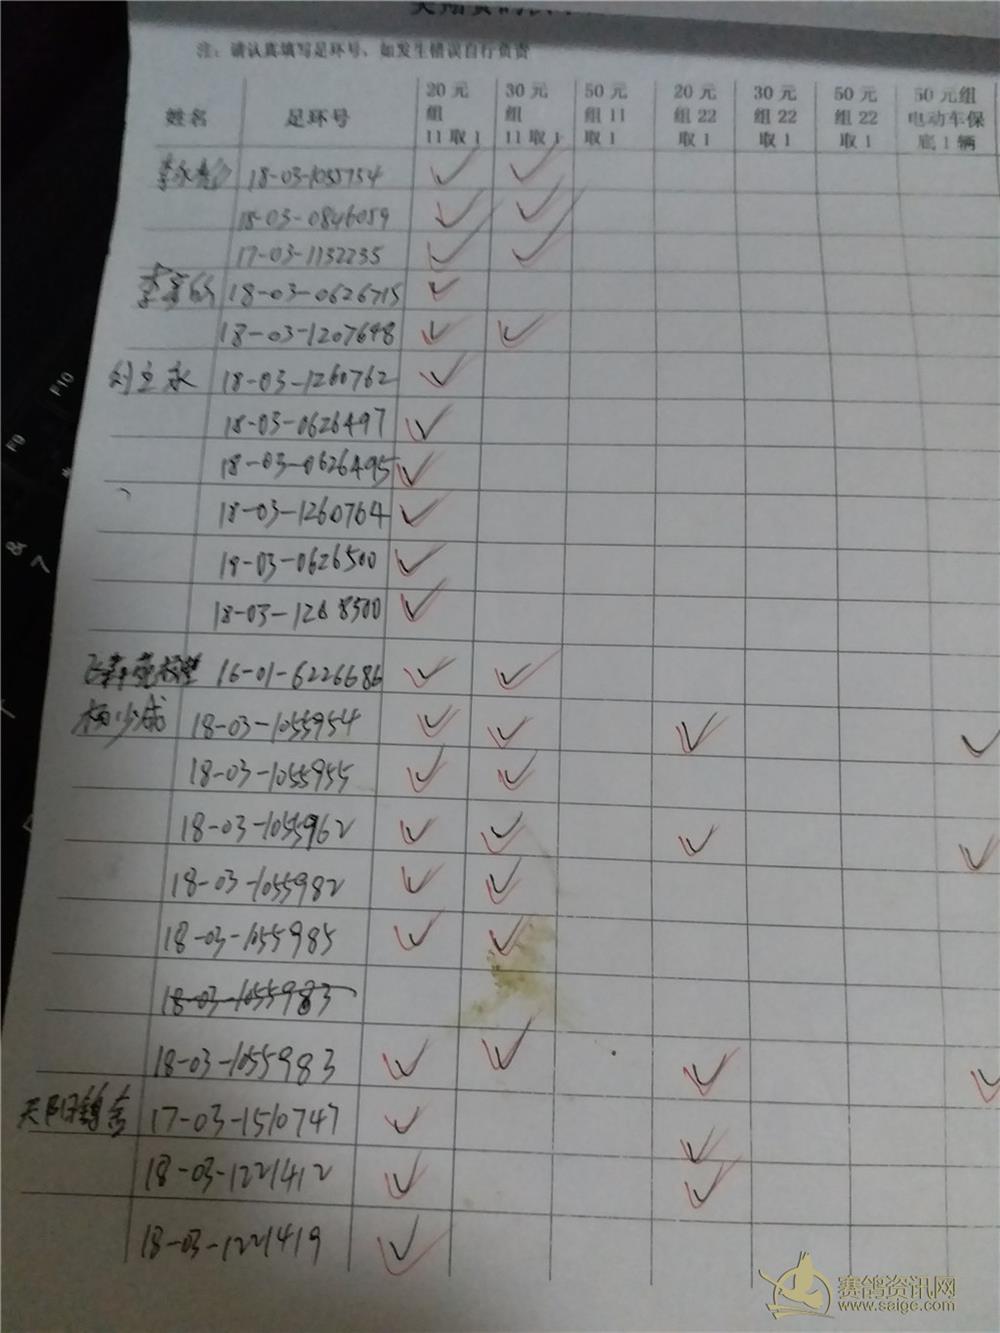 注：请认真填写足环号、如发生错误自行负责
姓名 足环号 20元组11取1 30元组11取1 50元组11取1 20元组22取1 30元组22取1 50元组22取1 50元组电动车保底1辆
李永亮 18-03-1055754 ✓ ✓
18-03-0846059 ✓ ✓
17-03-1132235 ✓ ✓
18-03-0626715 ✓
18-03-1207698 ✓ ✓
刘立永 18-03-1260762 ✓
18-03-0626497 ✓
18-03-0626495 ✓
18-03-1260764 ✓
18-03-0626500 ✓
18-03-1268500 ✓
16-01-6226686 ✓ ✓
杨少成 18-03-1055954 ✓ ✓ ✓ ✓
18-03-1055955 ✓ ✓
18-03-1055962 ✓ ✓ ✓ ✓
18-03-1055982 ✓ ✓
18-03-1055985 ✓ ✓
18-03-1055983
18-03-1055983 ✓ ✓ ✓ ✓
17-03-1510747 ✓ ✓
18-03-1221412 ✓ ✓
18-03-1221419 ✓
F10
F9
*
&
7
赛鸽资讯网
www.saige.com